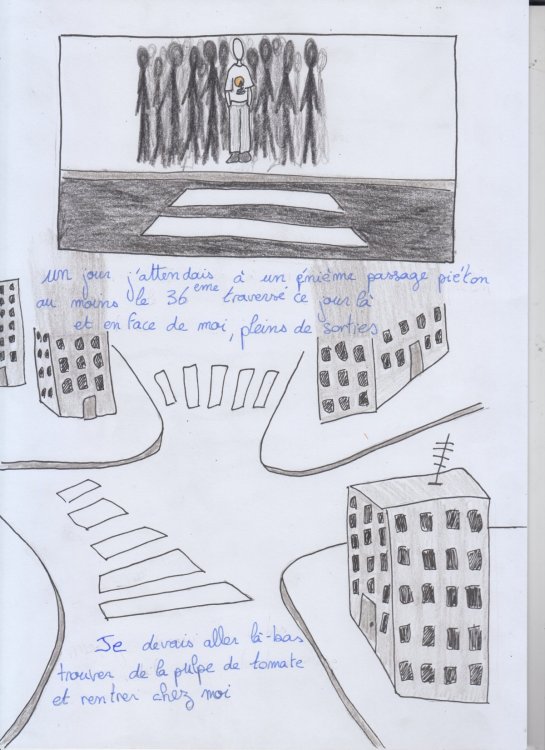 un jour j'attendais à un énième passage piéton
au moins le 36eme traversé ce jour là
et en face de moi, pleins de sorties
Je devais aller là-bas
trouver de la pulpe de tomate
et rentrer chez moi